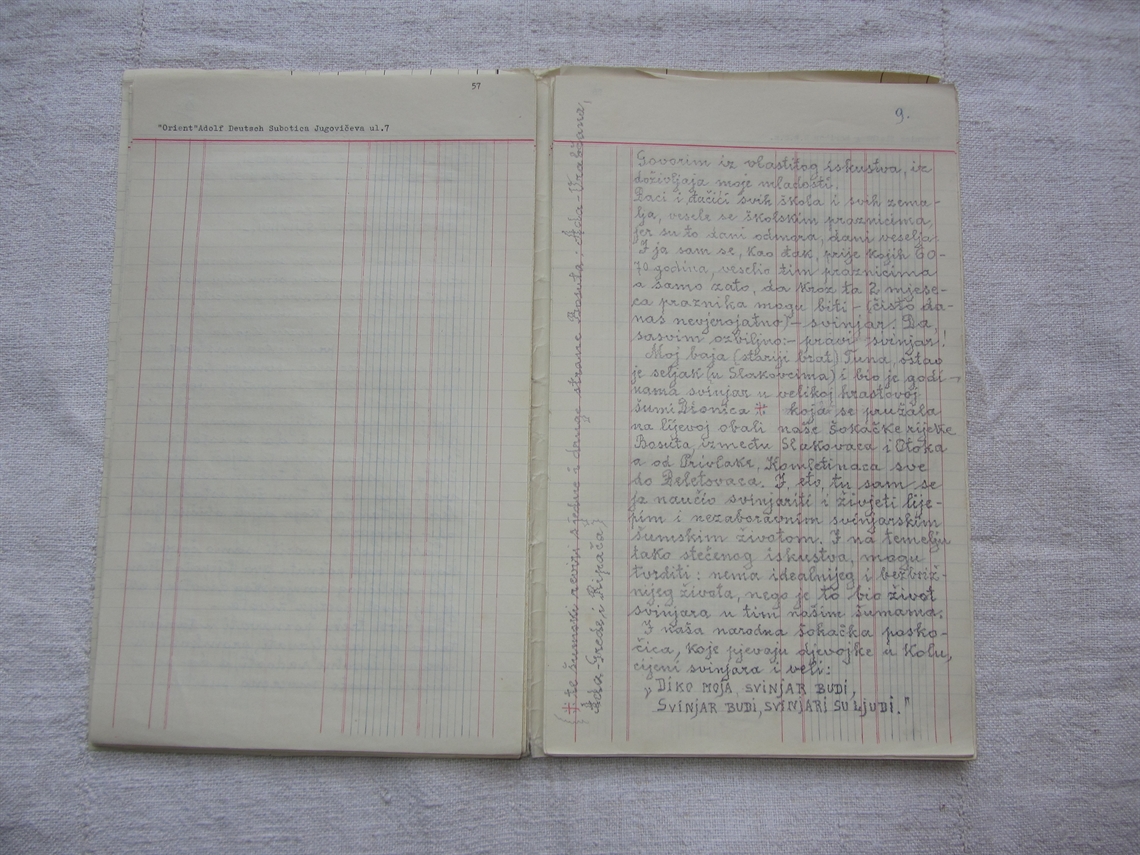 57
"Orient"Adolf Deutsch Subotica Jugovičeva ul.7
9.
Govorim iz vlastitog iskustva, iz
doživljaja moje mladosti.
Đaci i đačići svih škola i svih zema-
lja, vesele se školskim praznicima,
jer su to dani odmora, dani veselja.
I ja sam se, kao đak, prije kojih 60-
70 godina, veselio tim praznicima
a samo zato, da kroz ta 2 mjese-
ca praznika mogu biti - (čisto da-
nas nevjerojatno) - svinjar. Da,
sasvim ozbiljno:- pravi svinjar!
Moj baja (stariji brat) Tuna, ostao
je seljak (u Slakovcima) i bio je godi-
nama svinjar u velikoj hrastovoj
šumi Dionica ‡ koja se pružala
na lijevoj obali naše šokačke rijeke
Bosuta, između Slakovaca i Otoka
a od Privlake, Komletinaca sve
do Deletovaca. I, eto, tu sam se
ja naučio svinjariti i živjeti lije-
pim i nezaboravnim svinjarskim
šumskim životom. I na temelju
tako stečenog iskustva, mogu
tvrditi: nema idealnijeg i bezbriž-
nijeg života, nego je to bio život
svinjara u tim našim šumama.
I naša narodna šokačka posko-
čica, koje pjevaju djevojke u Kolu,
cijeni svinjara i veli:
„DIKO MOJA, SVINJAR BUDI,
SVINJAR BUDI, SVINJARI SU LJUDI."
(‡ te šumski reviri s jedne i druge strane Bosuta: Ada-Vrabčana,
Ada-Grede, i Ripača)